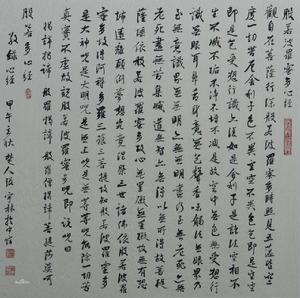 般若波羅蜜多心經
觀自在菩薩行深般若波羅蜜多時照見五蘊皆空
度一切苦厄舍利子色不異空空不異色色即是空空
即是色受想行識亦復如是舍利子是諸法空相不
生不滅不垢不淨不增不減是故空中無色無受想行
識無眼耳鼻舌身意無色聲香味觸法無眼界乃
至無意識界無無明亦無無明盡乃至無老死亦無
老死盡無苦集滅道無智亦無得以無所得故菩提
薩埵依般若波羅蜜多故心無罣礙無罣礙故無有恐
怖遠離顛倒夢想究竟涅槃三世諸佛依般若波羅
蜜多故得阿耨多羅三藐三菩提故知般若波羅蜜多
是大神咒是大明咒是無上咒是無等等咒能除一切苦
真實不虛故說般若波羅蜜多咒即說咒曰
揭諦揭諦 般羅揭諦 般羅僧揭諦 菩提薩婆訶
般若多心經
敬錄心經 甲午之秋 楚人